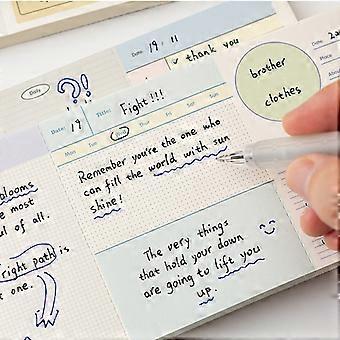 Daily
?!
Date: 19 . 11
✓ thank you
Date:
brother
clothes
Place
About
Date: 19
Fight!!!
Mon Tue Wed Thu Fri Sat Sun
Remember you're the one who
can fill the world with sun
shine!
blooms
e most
ful of all.
right path is
t one.
The very things
that hold your down
are going to lift you
up.